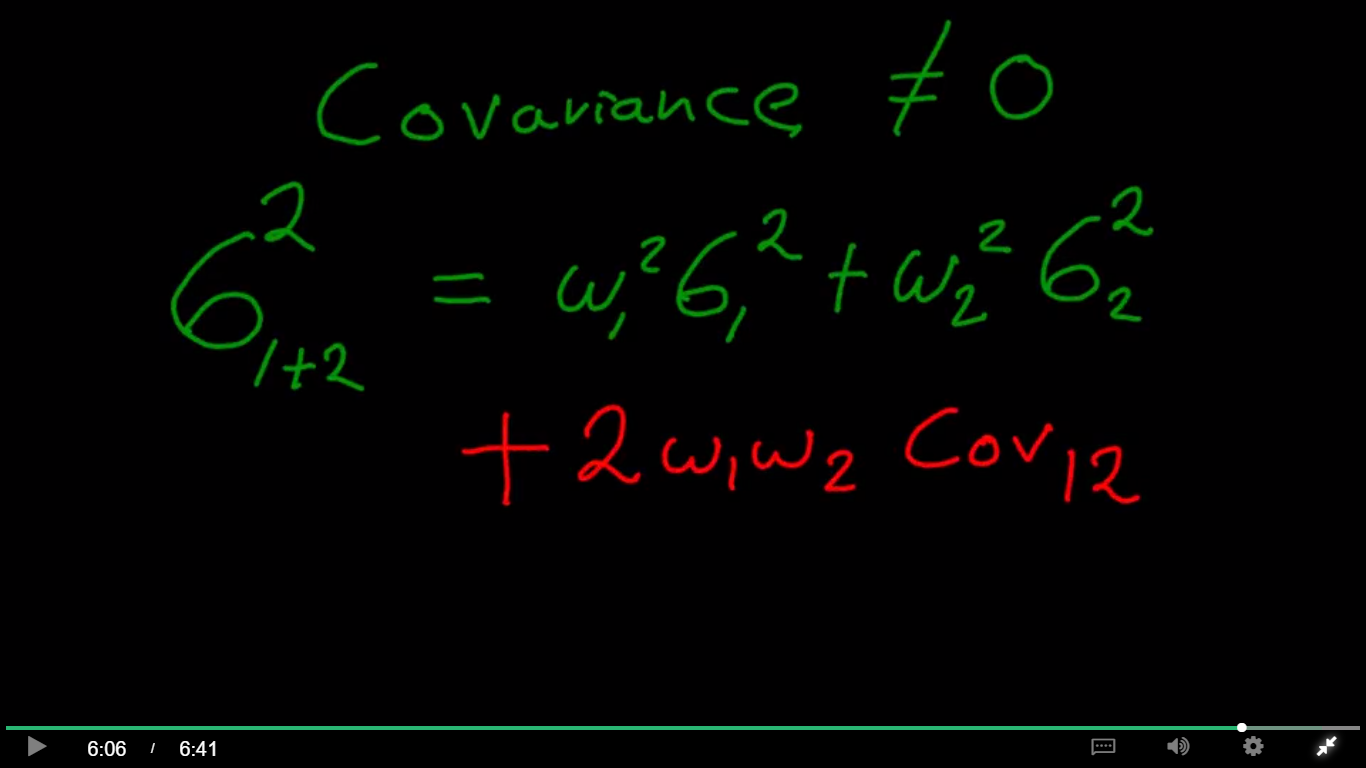 Covariance ≠ 0
σ²₁₊₂ = ω₁²σ₁² + ω₂²σ₂²
+ 2ω₁ω₂ Cov₁₂
6:06 / 6:41